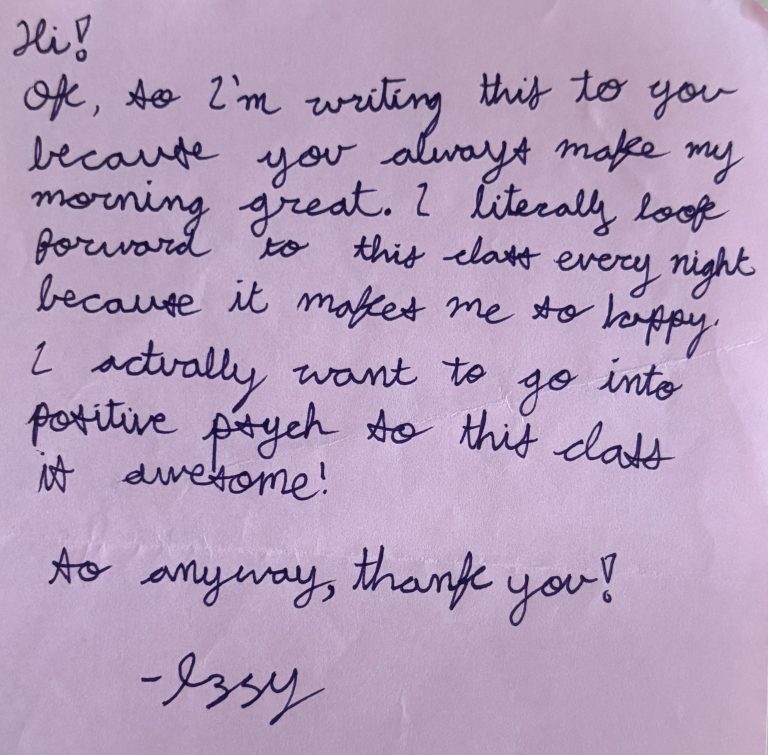 Hi!
Ok, so I'm writing this to you
because you always make my
morning great. I literally look
forward to this class every night
because it makes me so happy.
I actually want to go into
positive psych so this class
is awesome!
So anyway, thank you!
-Izzy